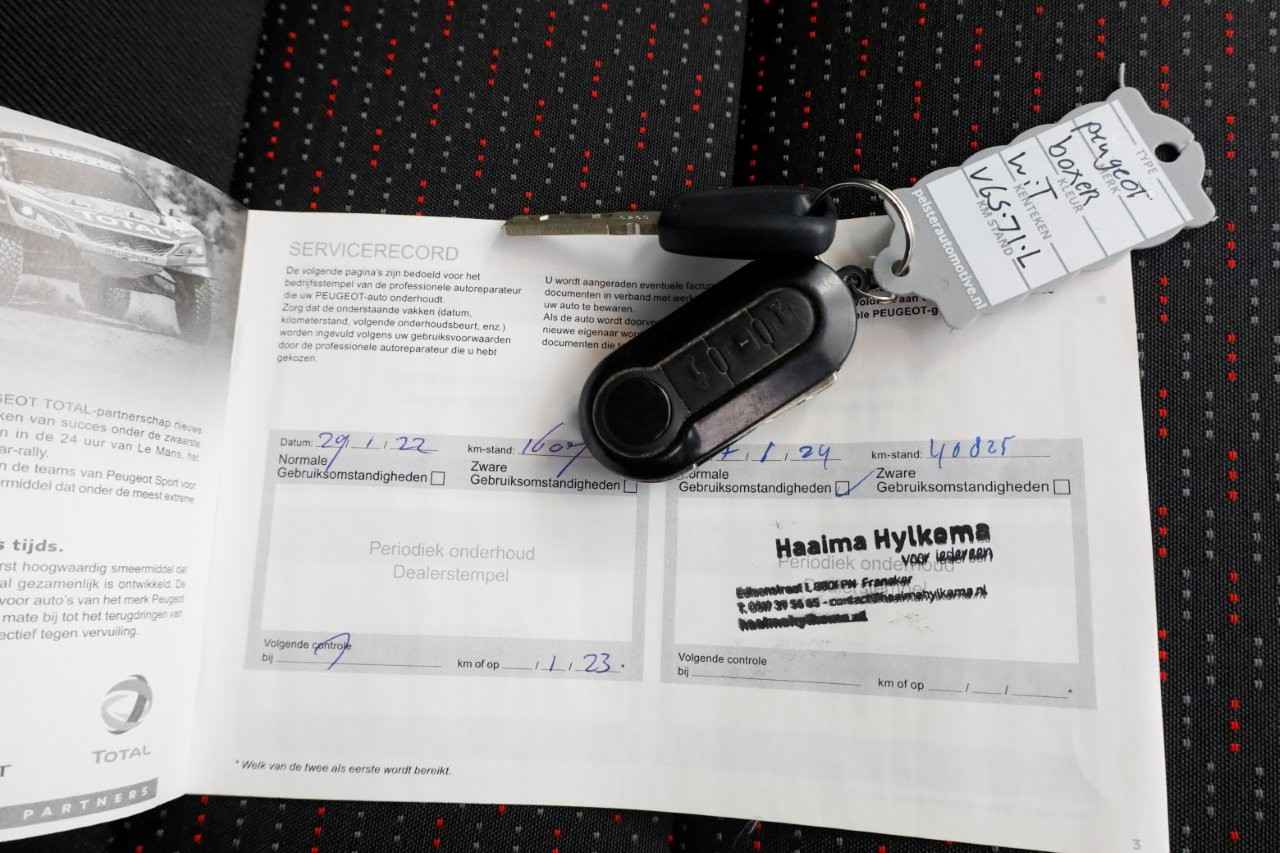 TOTAL
GEOT TOTAL-partnerschap nieuwe
ken van succes onder de zwaarste
n in de 24 uur van Le Mans, het
ar-rally.
n de teams van Peugeot Sport voor
ermiddel dat onder de meest extreme
s tijds.
rst hoogwaardig smeermiddel dat
al gezamenlijk is ontwikkeld. De
voor auto's van het merk Peugeot
mate bij tot het terugdringen van
ectief tegen vervuiling.
TOTAL
PARTNERS
SERVICERECORD
De volgende pagina's zijn bedoeld voor het
bedrijfsstempel van de professionele autoreparateur
die uw PEUGEOT-auto onderhoudt.
Zorg dat de onderstaande vakken (datum,
kilometerstand, volgende onderhoudsbeurt, enz.)
worden ingevuld volgens uw gebruiksvoorwaarden
door de professionele autoreparateur die u hebt
gekozen.
U wordt aangeraden eventuele factu
documenten in verband met werk
uw auto te bewaren.
Als de auto wordt doorv
nieuwe eigenaar wo
documenten die
ele PEUGEOT-g
TYPE
peugeot
MERK
boxer
KLEUR
wiT
KENTEKEN
VGS.71.L
KM STAND
pelsterautomotive.nl
Datum: 29 / 1 / 22 km-stand: 1607
Normale
Gebruiksomstandigheden
Zware
Gebruiksomstandigheden
Periodiek onderhoud
Dealerstempel
Volgende controle
bij km of op / 1 / 23 .
/ 24 km-stand: 40825
ormale
Gebruiksomstandigheden
Zware
Gebruiksomstandigheden
Haaima Hylkema
voor iedereen
Periodiek onderhoud
Edisonstraat 1, 8801 PN Franeker
contact@haaimahylkema.nl
haaimahylkema.nl
Volgende controle
bij km of op / / *
* Welk van de twee als eerste wordt bereikt.
3